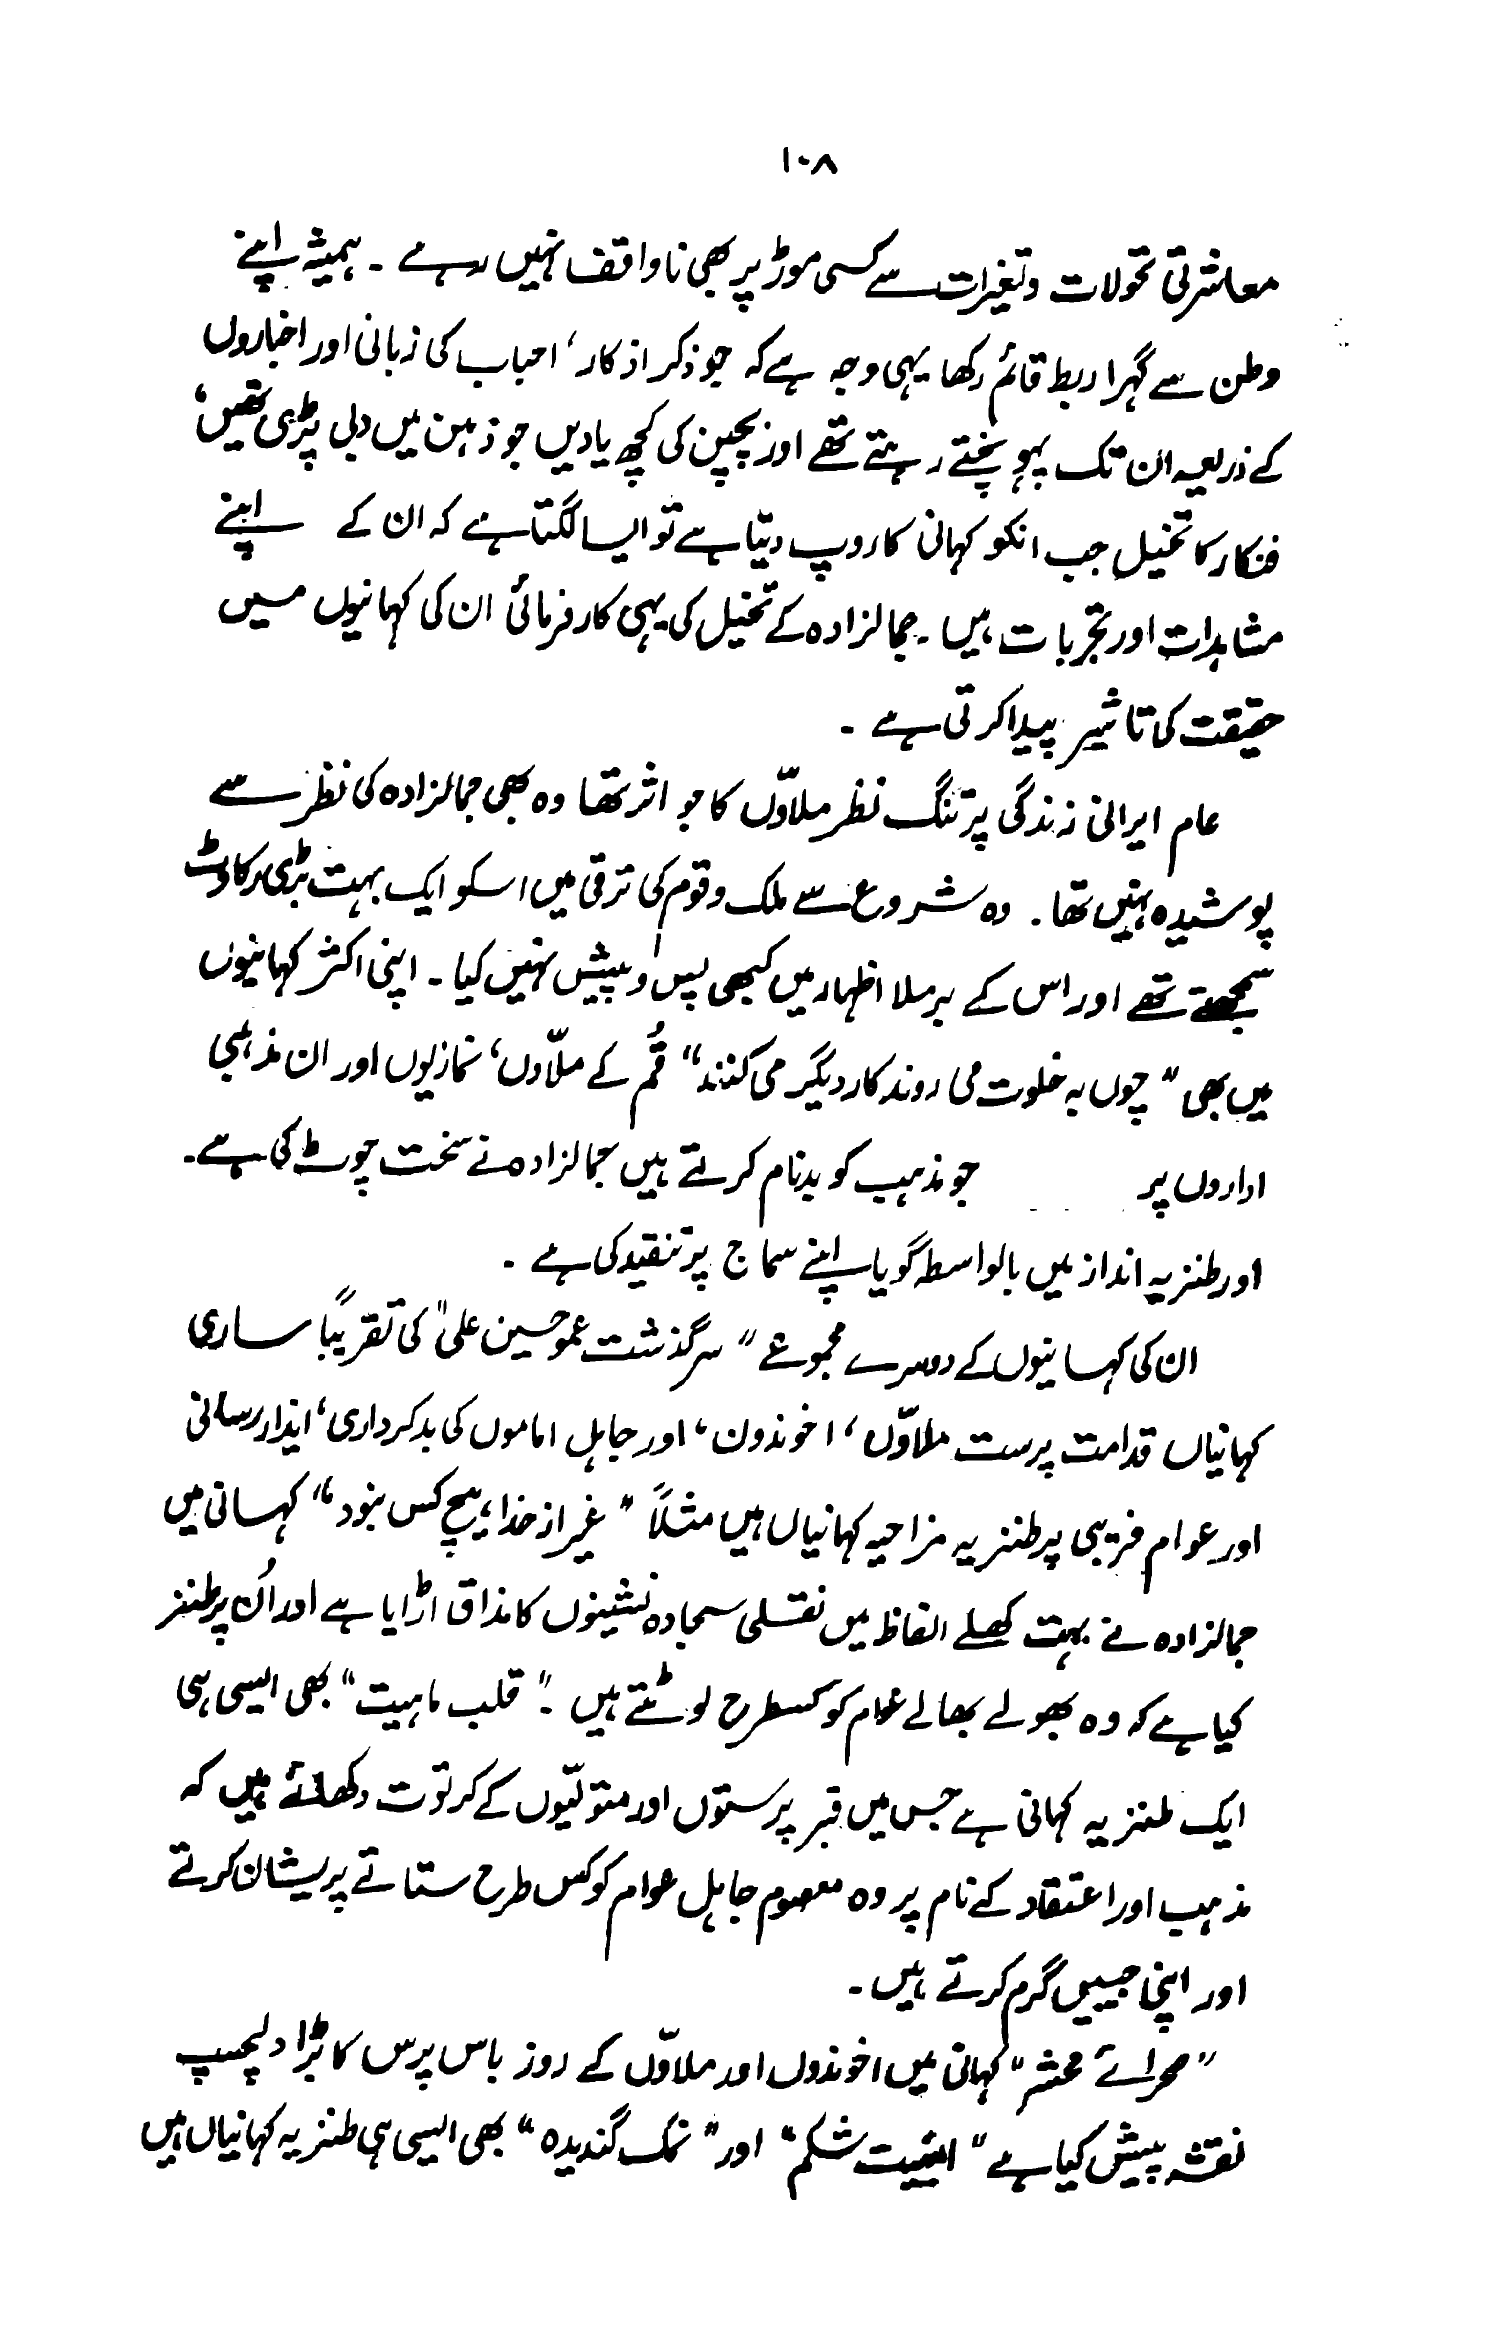 ۱۰۸
معاشرتی تحولات وتغیرات سے کسی موڑ پر بھی ناواقف نہیں رہے ۔ ہمیشہ اپنے
وطن سے گہرا ربط قائم رکھا یہی وجہ ہے کہ جو ذکر اذکار، احباب کی زبانی اور اخباروں
کے ذریعہ ان تک پہونچتے رہتے تھے اور بچپن کی کچھ یادیں جو ذہن میں دبی پڑی تھیں،
فنکار کا تخیل جب انکو کہانی کا روپ دیتا ہے تو ایسا لگتا ہے کہ ان کے اپنے
مشاہدات اور تجربات ہیں ۔ جمالزادہ کے تخیل کی یہی کارفرمائی ان کی کہانیوں میں
حقیقت کی تاثیر پیدا کرتی ہے ۔
عام ایرانی زندگی پر تنگ نظر ملاّوں کا جو اثر تھا وہ بھی جمالزادہ کی نظر سے
پوشیدہ نہیں تھا ۔ وہ شروع سے ملک وقوم کی ترقی میں اسکو ایک بہت بڑی رکاوٹ
سمجھتے تھے اور اس کے برملا اظہار میں کبھی پس و پیش نہیں کیا ۔ اپنی اکثر کہانیوں
میں بھی " چوں بہ خلوت می روند کار دیگر می کنند" قُم کے ملاّوں، نمازیوں اور ان مذہبی
اداروں پر جو مذہب کو بدنام کرتے ہیں جمالزادہ نے سخت چوٹ کی ہے۔
اور طنزیہ انداز میں بالواسطہ گویا اپنے سماج پر تنقید کی ہے ۔
ان کی کہانیوں کے دوسرے مجموعے " سرگذشت عمو حسین علی" کی تقریباً ساری
کہانیاں قدامت پرست ملاّوں ، اخوندون، اور جاہل اماموں کی بدکرداری، ایذارسانی
اور عوام فریبی پر طنزیہ مزاحیہ کہانیاں ہیں مثلاً " غیر از خدا ہیچ کس نبود" کہانی میں
جمالزادہ نے بہت کھلے الفاظ میں نقلی سجادہ نشینوں کا مذاق اڑایا ہے اور اُن پر طنز
کیا ہے کہ وہ بھولے بھالے عوام کو کسطرح لوٹتے ہیں ۔ " قلب ماہیت" بھی ایسی ہی
ایک طنزیہ کہانی ہے جس میں قبر پرستوں اور متولیّوں کے کرتوت دکھائے ہیں کہ
مذہب اور اعتقاد کے نام پر وہ معصوم جاہل عوام کو کس طرح ستاتے پریشان کرتے
اور اپنی جیبیں گرم کرتے ہیں ۔
" صحرائے محشر" کہانی میں اخوندوں اور ملاّوں کے روز باس پرس کا بڑا دلچسپ
نقشہ پیش کیا ہے " شکم" اور " نمک گندیدہ" بھی ایسی ہی طنزیہ کہانیاں ہیں